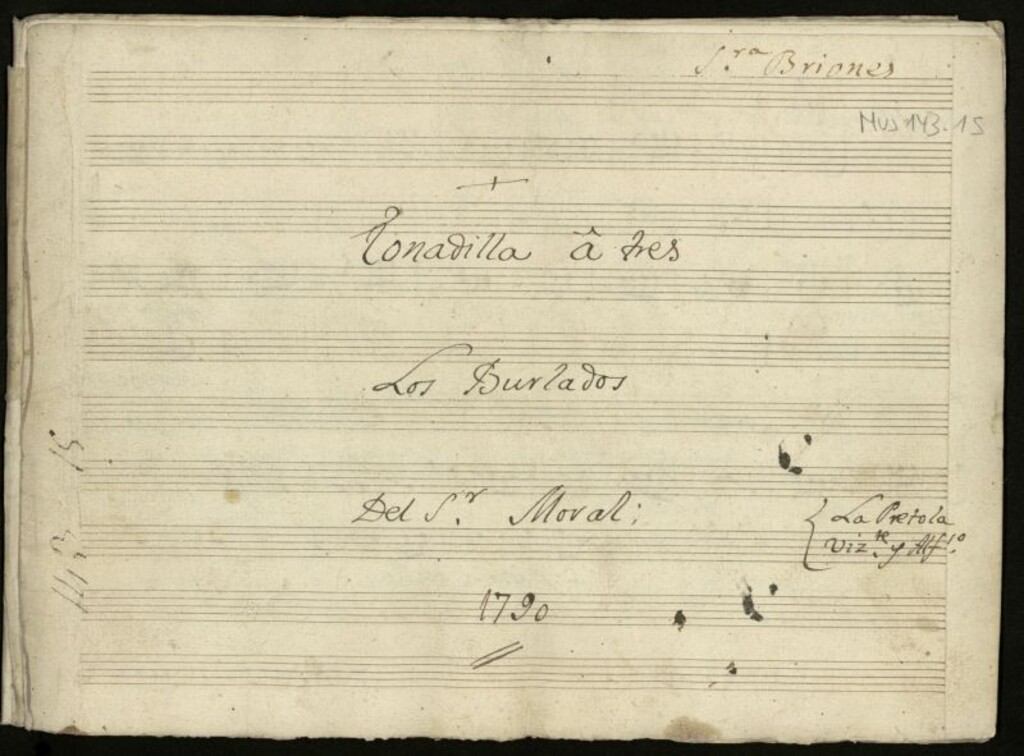 S.ra Briones
Mus 143-15
Tonadilla â tres
Los Burlados
Del S.r Moral:
La Pretola
Viz.te y Alf.so
1790
143 15